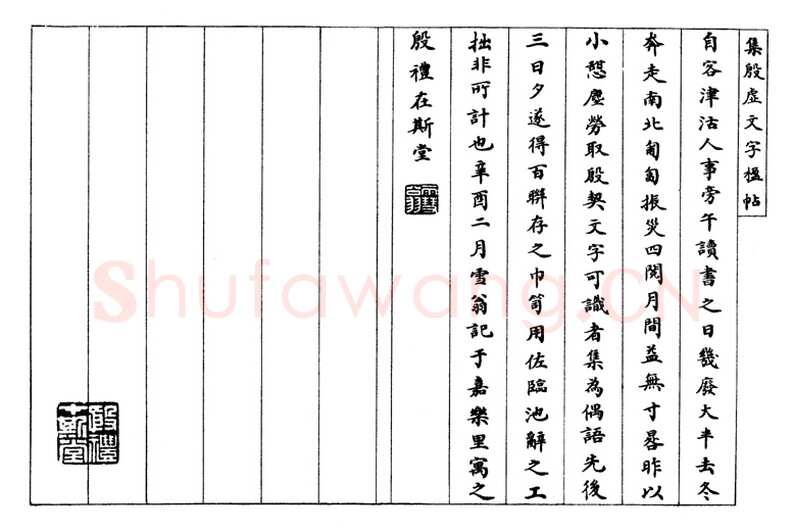 集殷虛文字楹帖
自客津沽人事旁午讀書之日幾廢大半去冬
奔走南北匍匐振災四閱月間益無寸晷昨以
小憩塵勞取殷契文字可識者集為偶語先後
三日夕遂得百聯存之巾笥用佐臨池辭之工
拙非所計也辛酉二月雪翁記于嘉樂里寓之
殷禮在斯堂
雪翁
殷禮
在斯堂
Shufawang.CN